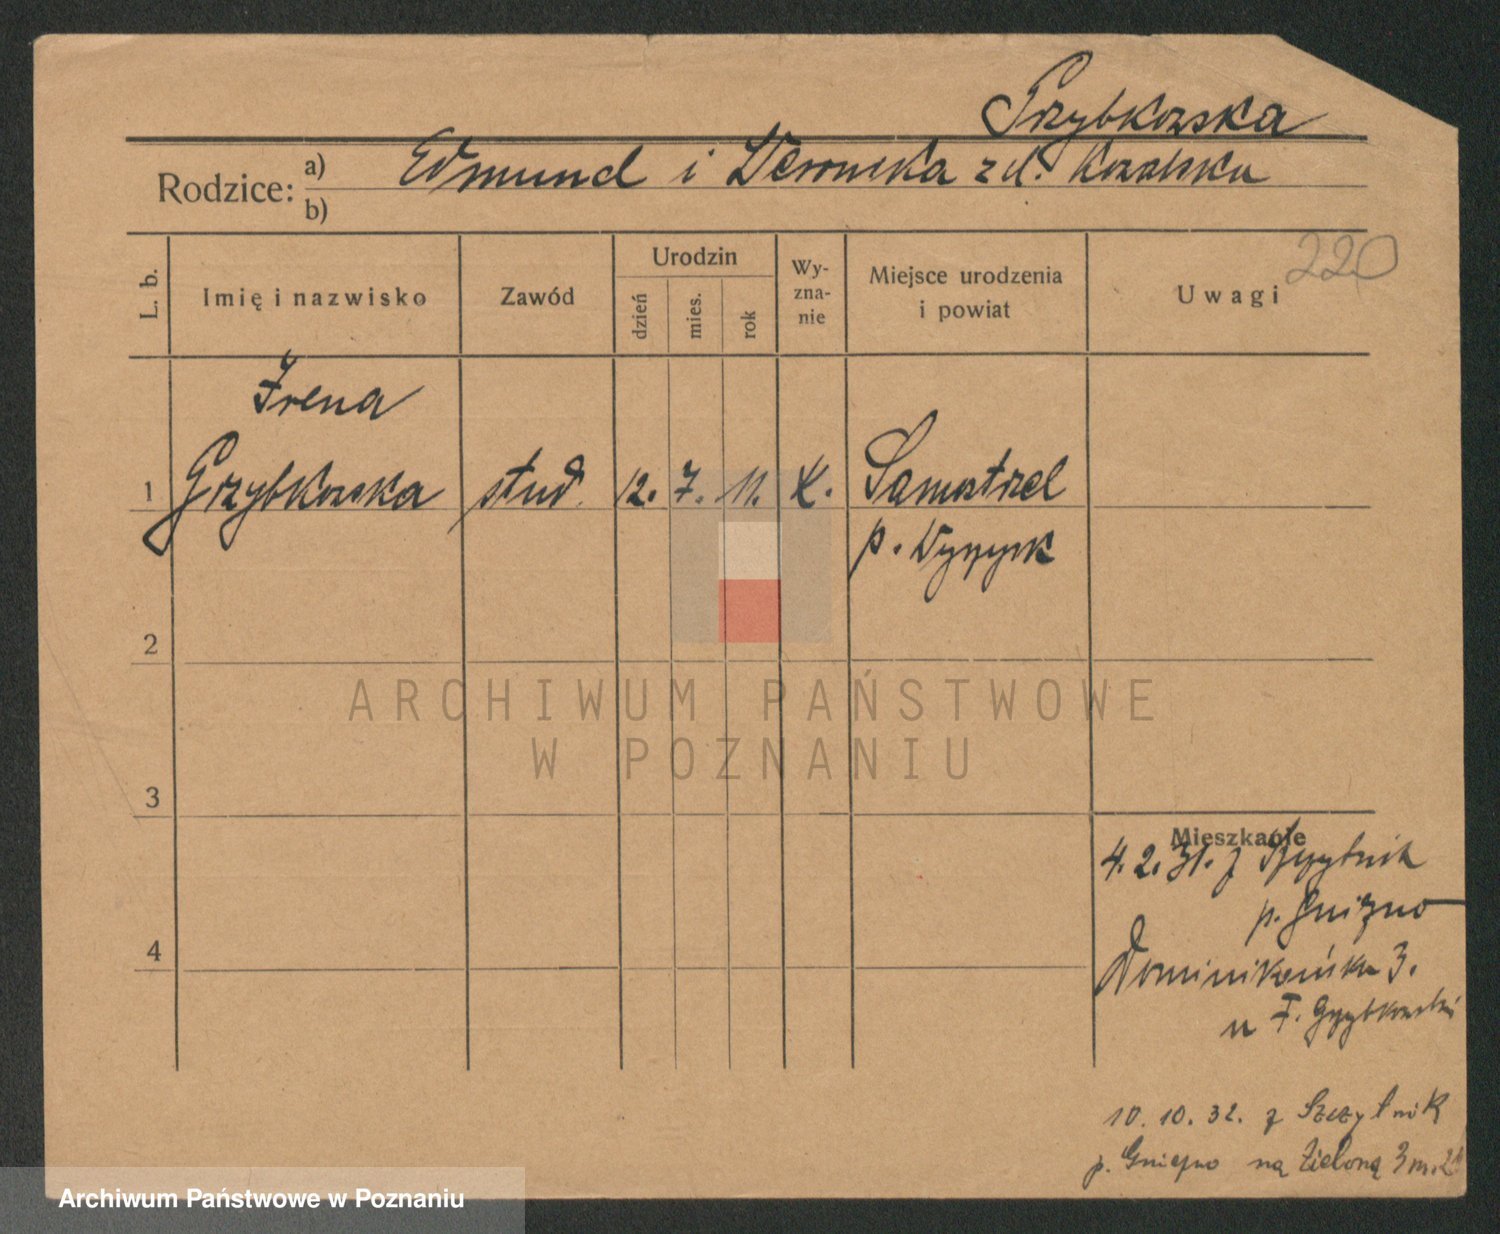 Grzybkowska
Rodzice: a) Edmund i Weronika z d. Kowalska
b)
220
L. b.
Imię i nazwisko
Zawód
Urodzin
dzień
mies.
rok
Wy-
zna-
nie
Miejsce urodzenia
i powiat
Uwagi
Irena
1 Grzybkowska stud. 12. 7. 11. k. Samostrzel
p. Wyrzysk
2
3
4
ARCHIWUM PAŃSTWOWE
W POZNANIU
Mieszkanie
4.2.31. z Szczytnik
p. Gniezno
Dominikańska 3.
u F. Grzybkowski
10.10.32. z Szczytnik
p. Gniezno na Zieloną 3 m.
Archiwum Państwowe w Poznaniu